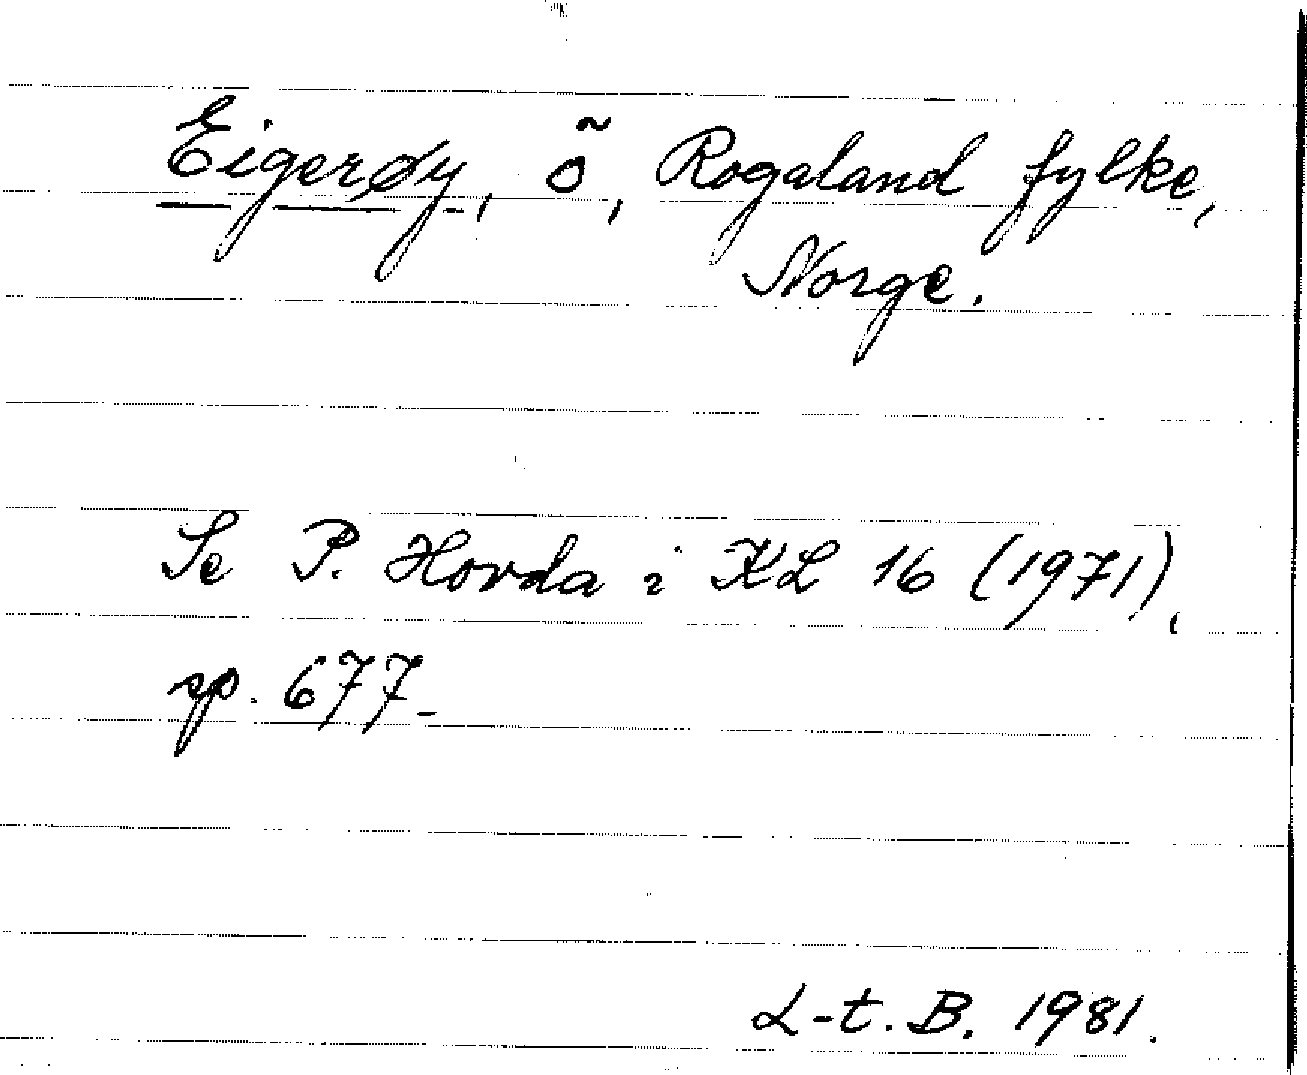 Eigerøy, ö, Rogaland fylke,
Norge.
Se P. Hovda i KL 16 (1971),
sp. 677.
L-t. B. 1981.